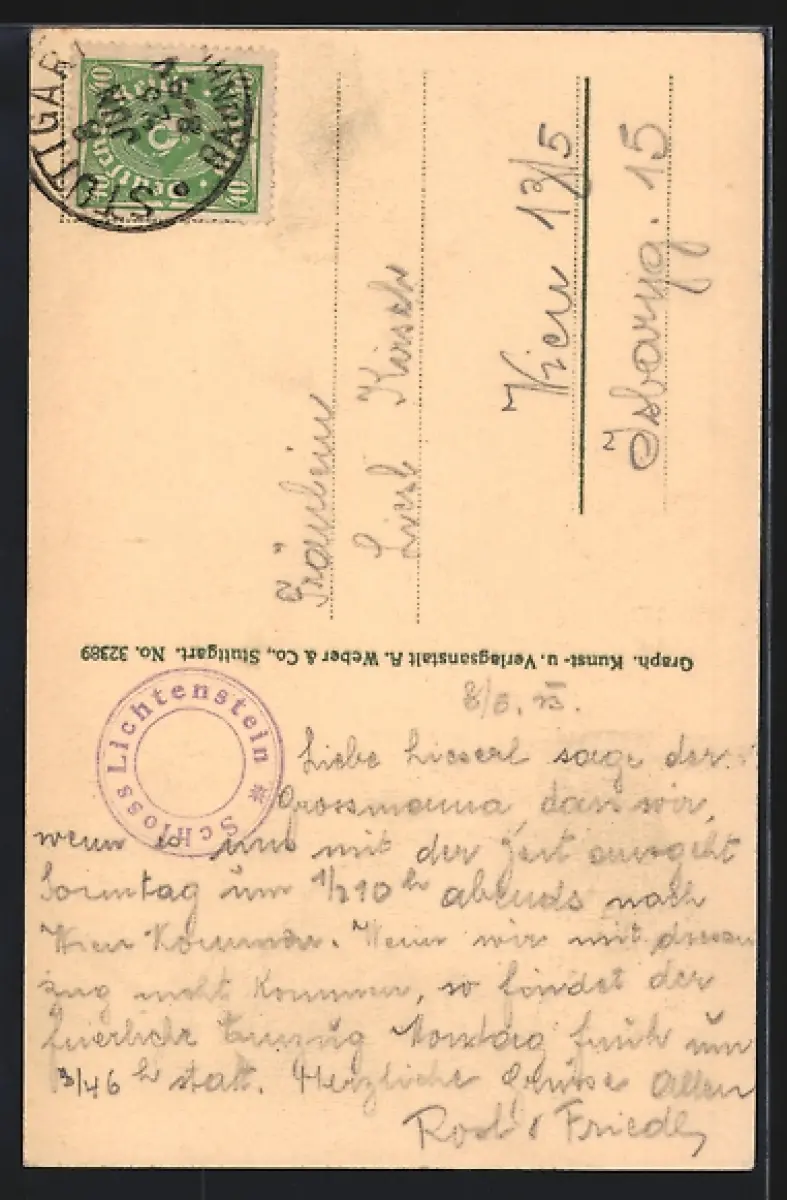 40
40
40
STUTTGART
BAHNH
8 JUN
8-9 N
Fräulein
Liesl Kirsch
Wien 13/5
Isbaryg. 15
Graph. Kunst- u. Verlagsanstalt A. Weber & Co., Stuttgart. No. 32389
Schloss Lichtenstein *
8/6. 23.
Liebe Lieserl sage der
Grossmama, dass wir,
wenn es uns mit der Zeit ausgeht
Sonntag um 1/2 10 h abends nach
Wien kommen. Wenn wir mit diesem
Zug nicht kommen, so findet der
feierliche Einzug Montag früh um
3/4 6 h statt. Herzliche Grüsse Allen
Friedl